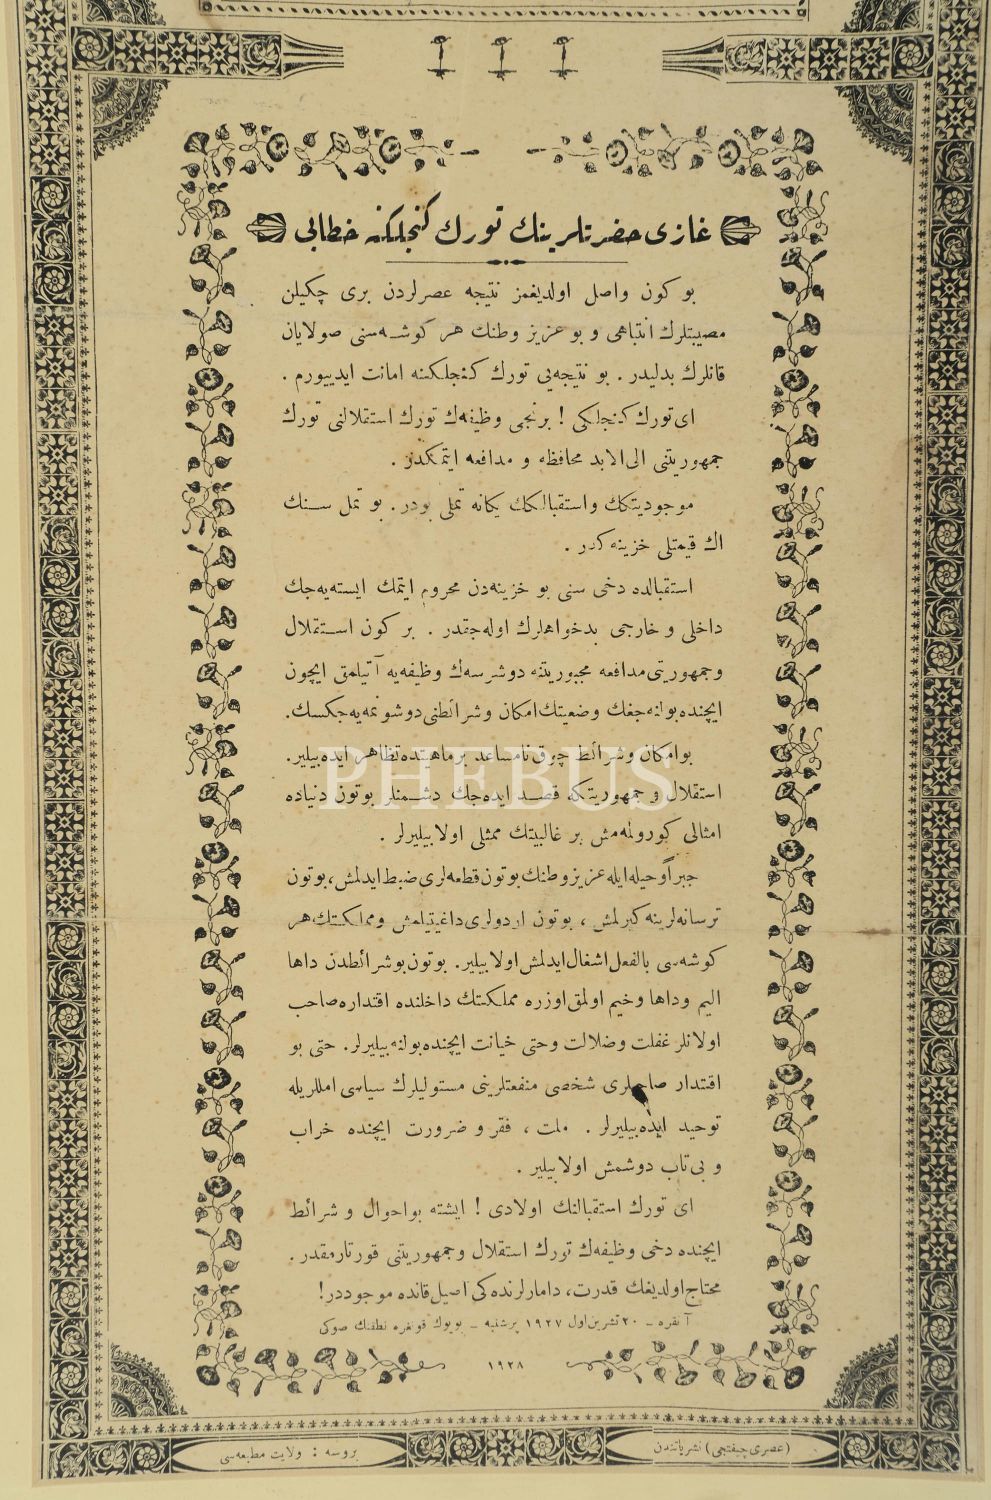 غازی حضرتلرینك تورك كنجلكنه خطابی
بو كون واصل اولدیغمز نتیجه عصرلردن بری چكیلن
مصیبتلرك انتباهی و بو عزیز وطنك هر كوشه‌سنی صولایان
قانلرك بدلیدر . بو نتیجه‌یی تورك كنجلكنه امانت ایدییورم .
ای تورك كنجلكی ! برنجی وظیفه‌ك تورك استقلالنی تورك
جمهوریتنی الی الابد محافظه و مدافعه ایتمكدر .
موجودیتكك واستقبالكك یكانه تملی بودر . بو تمل سنك
اك قیمتلی خزینه‌كدر .
استقبالده دخی سنی بو خزینه‌دن محروم ایتمك ایسته‌یه‌جك
داخلی و خارجی بدخواهلرك اوله‌جقدر . بر كون استقلال
وجمهوریتی مدافعه مجبوریتنه دوشرسه‌ك وظیفه‌یه آتیلمق ایچون
ایچنده بولنه‌جغك وضعیتك امكان وشرائطنی دوشونمه‌یه‌جكسك.
بو امكان وشرائط چوق نامساعد بر ماهیتده تظاهر ایده‌بیلیر.
PHEBUS
استقلال و جمهوریتكه قصد ایده‌جك دشمنلر بوتون دنیاده
امثالی كورولمه‌مش بر غالبیتك ممثلی اولابیلیرلر .
جبراً وحیله ایله عزیز وطنك بوتون قلعه‌لری ضبط ایدلمش، بوتون
ترسانه‌لرینه كیرلمش ، بوتون اردولری داغیتیلمش ومملكتك هر
كوشه‌سی بالفعل اشغال ایدلمش اولابیلیر. بوتون بو شرائطدن داها
الیم وداها وخیم اولمق اوزره مملكتك داخلنده اقتداره صاحب
اولانلر غفلت وضلالت وحتی خیانت ایچنده بولنه‌بیلیرلر. حتی بو
اقتدار صاحبلری شخصی منفعتلرینی مستولیلرك سیاسی امللریله
توحید ایده‌بیلیرلر . ملت ، فقر و ضرورت ایچنده خراب
و بی تاب دوشمش اولابیلیر .
ای تورك استقبالنك اولادی ! ایشته بو احوال و شرائط
ایچنده دخی وظیفه‌ك تورك استقلال وجمهوریتنی قورتارمقدر .
محتاج اولدیغك قدرت، دامارلرنده‌كی اصیل قانده موجوددر !
آنقره – ٢٠ تشرین اول ١٩٢٧ پرشنبه – بویوك قونغره نطقنك صوكی
١٩٢٨
(عصری چیفتجی) نشریاتندن
بروسه : ولایت مطبعه‌سی